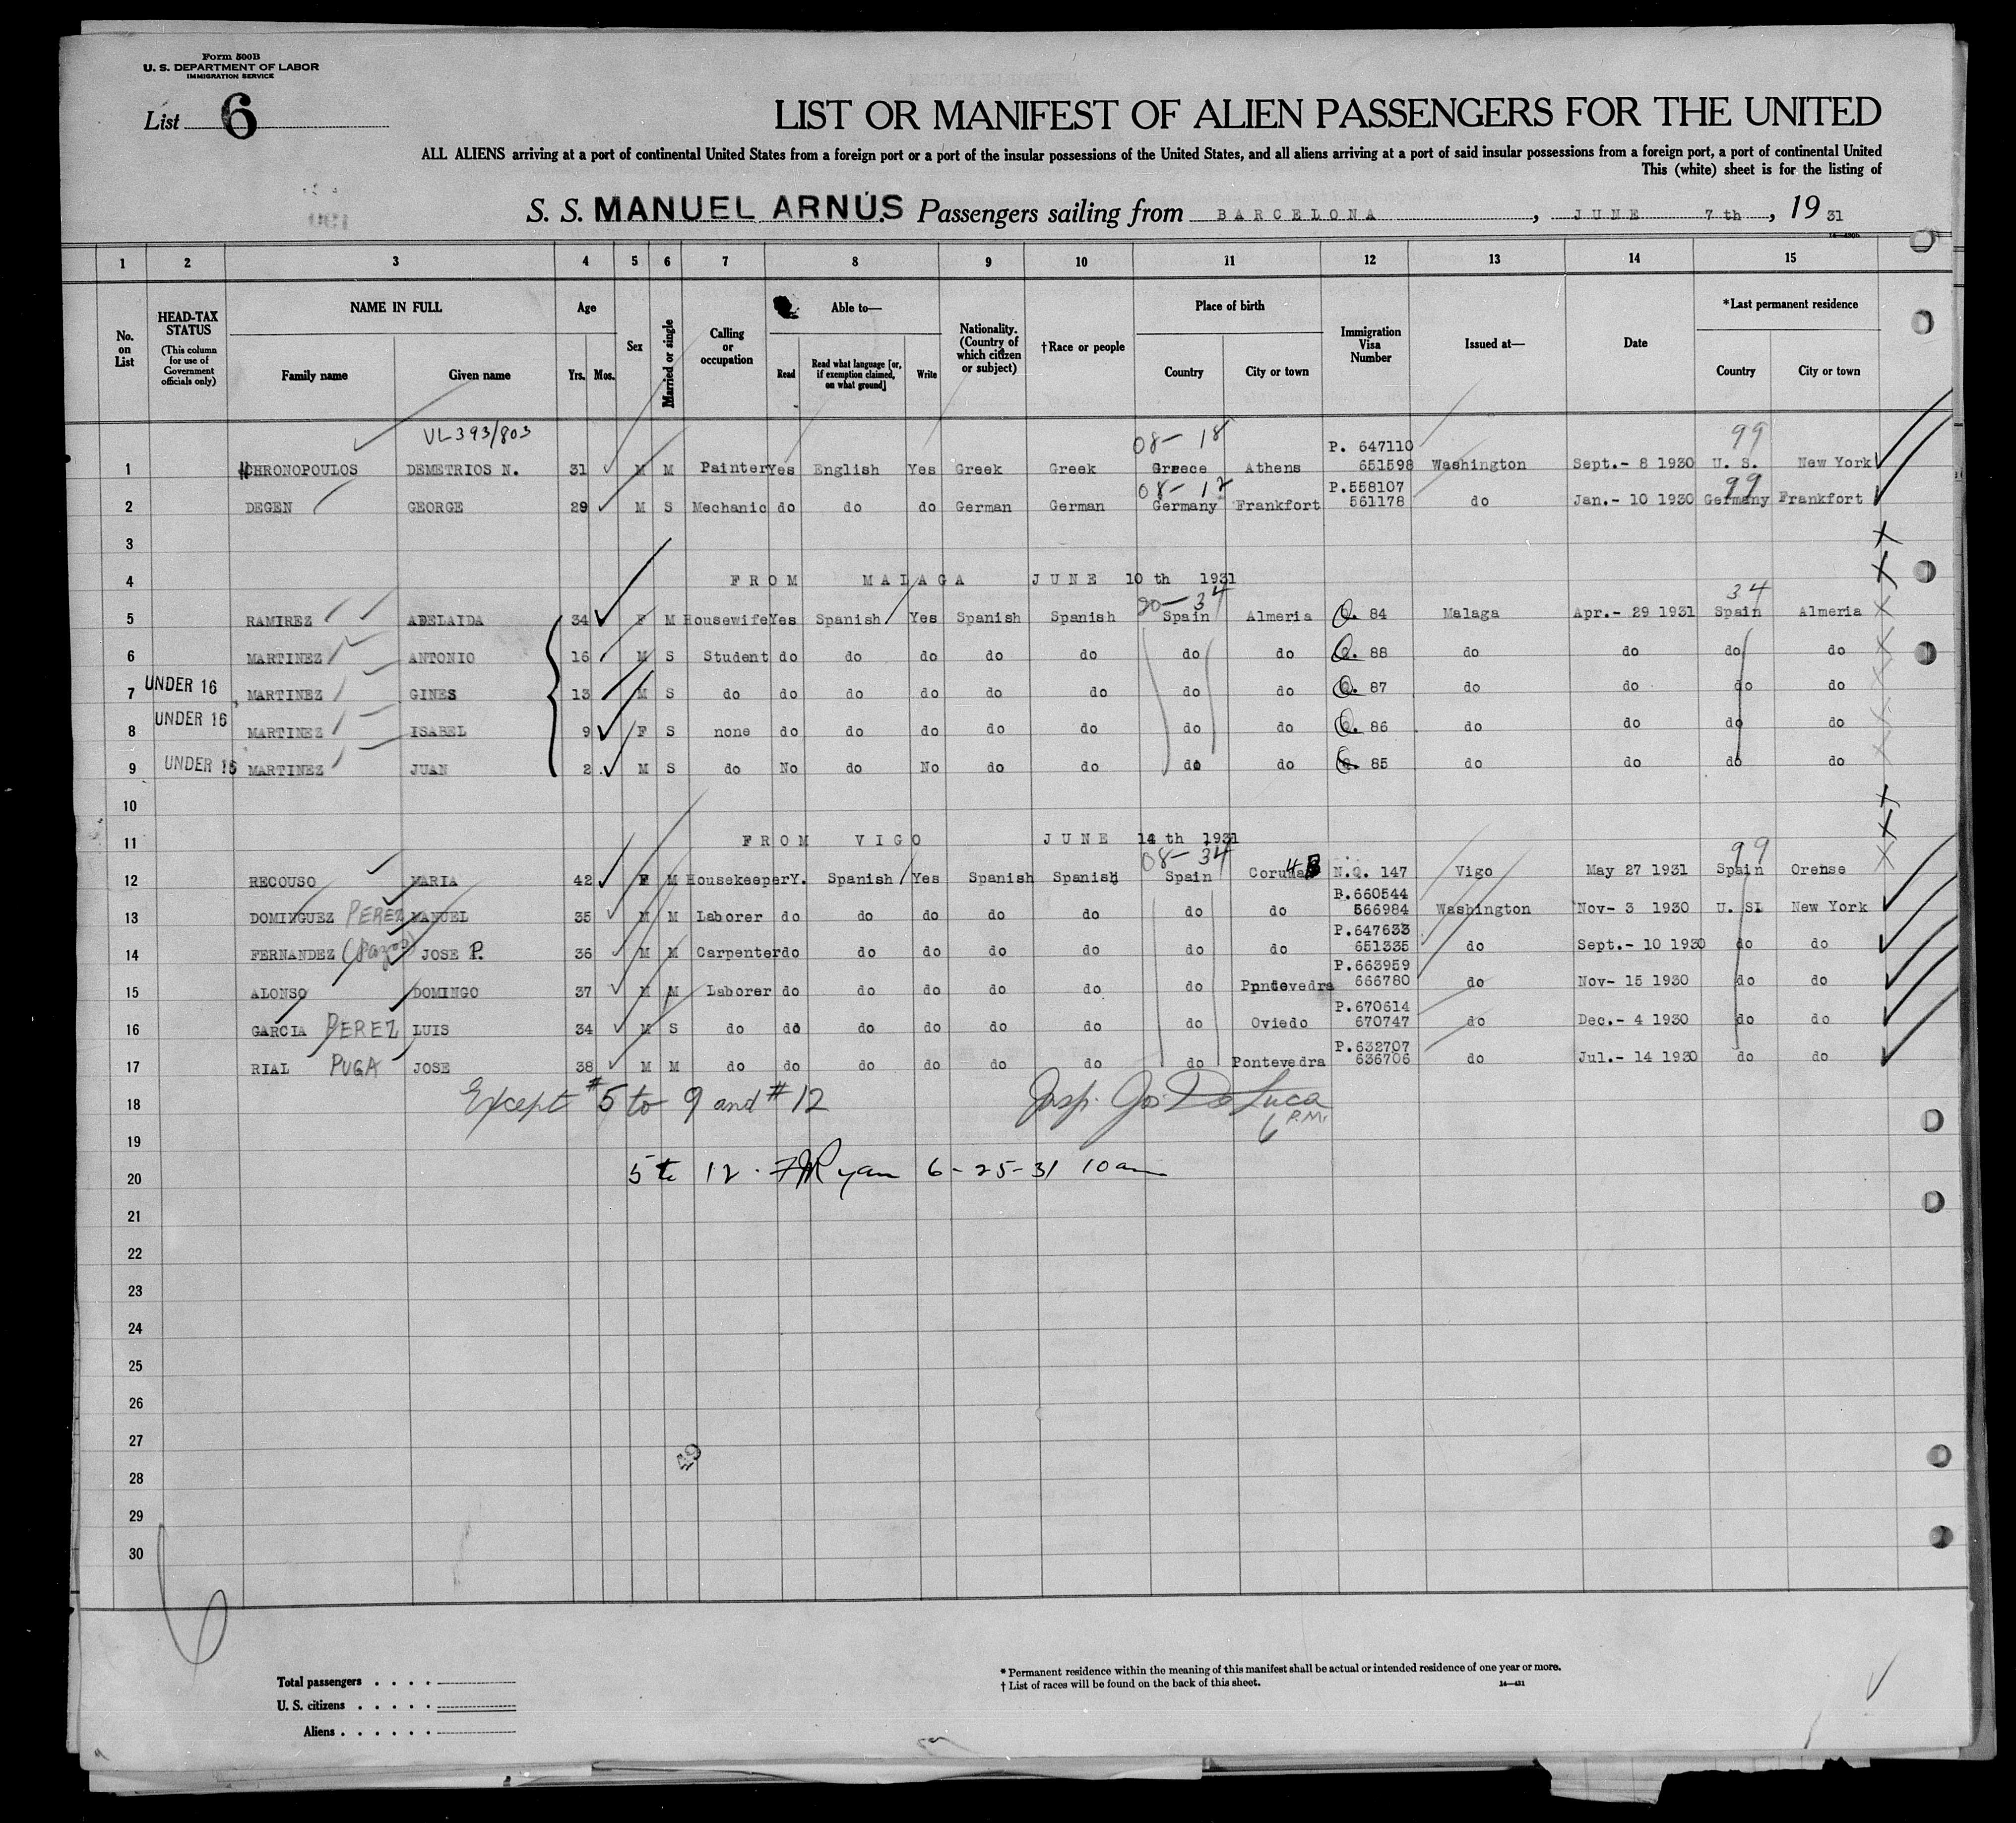 Form 500B
U. S. DEPARTMENT OF LABOR
IMMIGRATION SERVICE
List 6
LIST OR MANIFEST OF ALIEN PASSENGERS FOR THE UNITED
ALL ALIENS arriving at a port of continental United States from a foreign port or a port of the insular possessions of the United States, and all aliens arriving at a port of said insular possessions from a foreign port, a port of continental United
This (white) sheet is for the listing of
S. S. MANUEL ARNÚS. Passengers sailing from BARCELONA, JUNE 7th, 19 31
1 2 3 4 5 6 7 8 9 10 11 12 13 14 15
No. on List
HEAD-TAX STATUS (This column for use of Government officials only)
NAME IN FULL
Family name Given name
Age
Yrs. Mos.
Sex
Married or single
Calling or occupation
Able to—
Read
Read what language [or, if exemption claimed, on what ground]
Write
Nationality. (Country of which citizen or subject)
†Race or people
Place of birth
Country City or town
Immigration Visa Number
Issued at—
Date
*Last permanent residence
Country City or town
VL 393/803 08- 18 P. 647110 99
1 CHRONOPOULOS DEMETRIOS N. 31 M M Painter Yes English Yes Greek Greek Greece Athens 651598 Washington Sept.- 8 1930 U. S. New York
08- 12 P.558107 99
2 DEGEN GEORGE 29 M S Mechanic do do do German German Germany Frankfort 561178 do Jan.- 10 1930 Germany Frankfort
3
4 FROM MALAGA JUNE 10 th 1931
20- 34 34
5 RAMIREZ ADELAIDA 34 F M Housewife Yes Spanish Yes Spanish Spanish Spain Almeria Q. 84 Malaga Apr.- 29 1931 Spain Almeria
6 MARTINEZ ANTONIO 16 M S Student do do do do do do do Q. 88 do do do do
7 UNDER 16 MARTINEZ GINES 13 M S do do do do do do do do Q. 87 do do do do
8 UNDER 16 MARTINEZ ISABEL 9 F S none do do do do do do do Q. 86 do do do do
9 UNDER 16 MARTINEZ JUAN 2 M S do No do No do do do do Q. 85 do do do do
10
11 FROM VIGO JUNE 14 th 1931
08- 34 99
12 RECOUSO MARIA 42 F M Housekeeper Y. Spanish Yes Spanish Spanish Spain Coruña N.Q. 147 Vigo May 27 1931 Spain Orense
P.660544
13 DOMINGUEZ PEREZ MANUEL 35 M M Laborer do do do do do do do 566984 Washington Nov- 3 1930 U. S. New York
P.647633
14 FERNANDEZ (Pazos) JOSE P. 36 M M Carpenter do do do do do do do 651335 do Sept.- 10 1930 do do
P.663959
15 ALONSO DOMINGO 37 M M Laborer do do do do do do Pontevedra 666780 do Nov- 15 1930 do do
P.670614
16 GARCIA PEREZ LUIS 34 M S do do do do do do do Oviedo 670747 do Dec.- 4 1930 do do
P.632707
17 RIAL PUGA JOSE 38 M M do do do do do do do Pontevedra 636706 do Jul.- 14 1930 do do
18 Except #5 to 9 and #12 Insp. Jos De Luca
6 P.M.
19
20 5 to 12. FJ Ryan 6-25-31 10 am
21
22
23
24
25
26
27
28
29
30
Total passengers
U. S. citizens
Aliens
* Permanent residence within the meaning of this manifest shall be actual or intended residence of one year or more.
† List of races will be found on the back of this sheet.
14—421